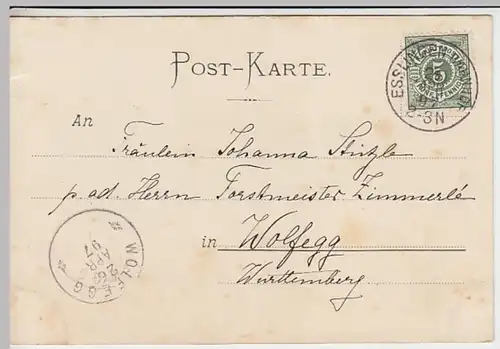 POST-KARTE.
ESSLINGEN
2-3N
5
PFENNIG
An
Fräulein Johanna Stützle
p. ad. Herrn Forstmeister Zimmerle
in Wolfegg
Württemberg
WOLFEGG
2
APR
97